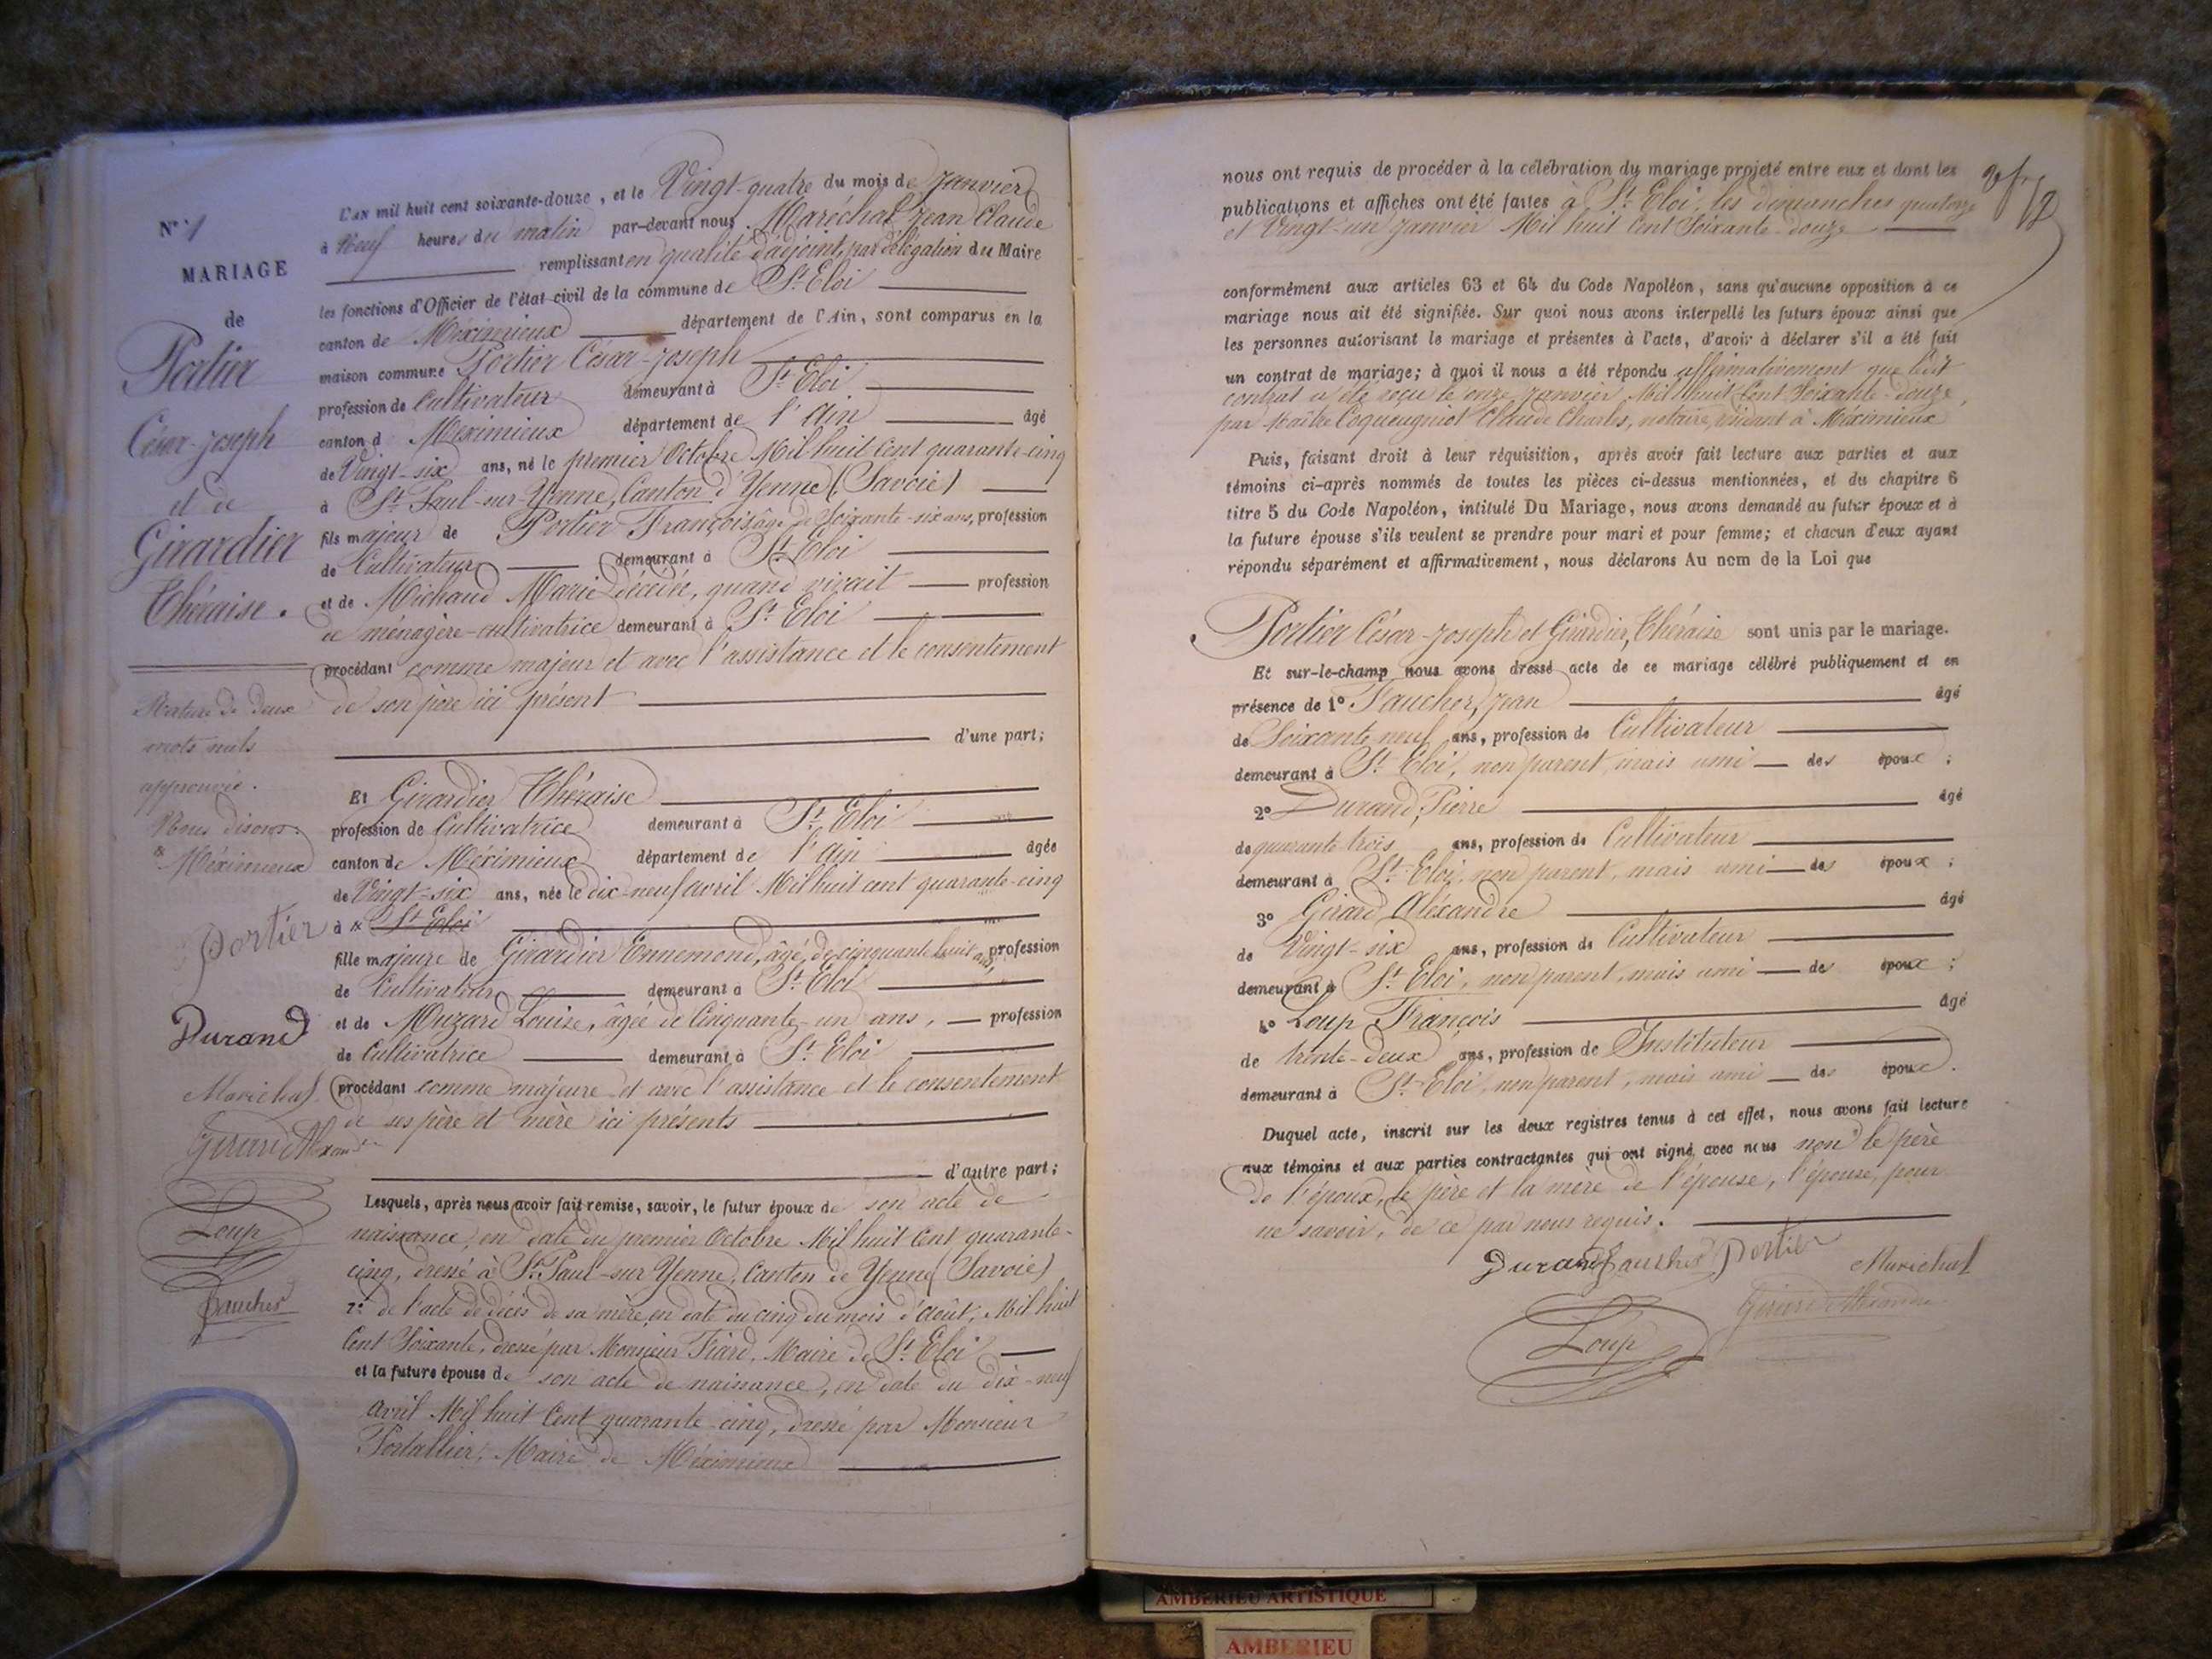 N° 1
MARIAGE
de
Portier
César-Joseph
et de
Girardier
Théraise.
Rature de deux
mots nuls
approuvée.
Nous disons:
à Méximieux
Portier
Durand
Maréchal
Girard Alexandre
Loup
Faucher
L'AN mil huit cent soixante-douze, et le Vingt-quatre du mois de Janvier
à Neuf heures du matin par-devant nous Maréchal Jean Claude
remplissant en qualité d'adjoint, par délégation du Maire
les fonctions d'Officier de l'état civil de la commune de St Eloi
canton de Méximieux département de l'Ain, sont comparus en la
maison commune Portier César-Joseph
profession de Cultivateur demeurant à St Eloi
canton d Méximieux département de l'Ain âgé
de Vingt-six ans, né le premier Octobre Mil huit Cent quarante-cinq
à St Paul-sur-Yenne, Canton d'Yenne (Savoie)
fils majeur de Portier François âgé de Soixante-six ans, profession
de Cultivateur demeurant à St Eloi
et de Michaud Marie décédée, quand vivait profession
de ménagère-cultivatrice demeurant à St Eloi
procédant comme majeur et avec l'assistance et le consentement
de son père ici présent
d'une part;
Et Girardier Théraise
profession de Cultivatrice demeurant à St Eloi
canton de Méximieux département de l'Ain âgée
de Vingt-six ans, née le dix-neuf avril Mil huit cent quarante-cinq
à St Eloi
fille majeure de Girardier Ennemond, âgé de cinquante huit ans, profession
de Cultivateur demeurant à St Eloi
et de Muzard Louise, âgée de Cinquante-un ans, profession
de Cultivatrice demeurant à St Eloi
procédant comme majeure et avec l'assistance et le consentement
de ses père et mère ici présents
d'autre part;
Lesquels, après nous avoir fait remise, savoir, le futur époux de son acte de
naissance, en date du premier Octobre Mil huit Cent quarante-
cinq, dressé à St Paul-sur Yenne, Canton de Yenne (Savoie)
2° de l'acte de décès de sa mère, en date du cinq du mois d'Août, Mil huit
Cent Soixante, dressé par Monsieur Fiard, Maire de St Eloi
et la future épouse de son acte de naissance, en date du dix-neuf
Avril Mil huit Cent quarante-cinq, dressé par Monsieur
Portallier, Maire de Méximieux
nous ont requis de procéder à la célébration du mariage projeté entre eux et dont les
publications et affiches ont été faites à St Eloi, les dimanches quatorze
et Vingt-un Janvier Mil huit Cent Soixante-douze
conformément aux articles 63 et 64 du Code Napoléon, sans qu'aucune opposition à ce
mariage nous ait été signifiée. Sur quoi nous avons interpellé les futurs époux ainsi que
les personnes autorisant le mariage et présentes à l'acte, d'avoir à déclarer s'il a été fait
un contrat de mariage; à quoi il nous a été répondu affirmativement que led't
contrat a été reçu le onze Janvier Mil huit Cent Soixante-douze,
par Maître Coqueugniot Claude Charles, notaire, résidant à Méximieux
Puis, faisant droit à leur réquisition, après avoir fait lecture aux parties et aux
témoins ci-après nommés de toutes les pièces ci-dessus mentionnées, et du chapitre 6
titre 5 du Code Napoléon, intitulé Du Mariage, nous avons demandé au futur époux et à
la future épouse s'ils veulent se prendre pour mari et pour femme; et chacun d'eux ayant
répondu séparément et affirmativement, nous déclarons Au nom de la Loi que
Portier César-Joseph et Girardier, Théraise sont unis par le mariage.
Et sur-le-champ nous avons dressé acte de ce mariage célébré publiquement et en
présence de 1° Faucher, Jean âgé
de Soixante neuf ans, profession de Cultivateur
demeurant à St Eloi, non parent, mais ami des époux;
2° Durand, Pierre âgé
de quarante trois ans, profession de Cultivateur
demeurant à St Eloi, non parent, mais ami des époux;
3° Girard Aléxandre âgé
de Vingt-six ans, profession de Cultivateur
demeurant à St Eloi, non parent, mais ami des époux;
4° Loup François âgé
de trente-deux ans, profession de Instituteur
demeurant à St Eloi, non parent, mais ami des époux.
Duquel acte, inscrit sur les deux registres tenus à cet effet, nous avons fait lecture
aux témoins et aux parties contractantes qui ont signé avec nous non le père
de l'époux, le père et la mère de l'épouse, l'épouse, pour
ne savoir, de ce par nous requis.
Durand Faucher Portier Maréchal
Girard Alexandre
Loup
AMBERIEU ARTISTIQUE
AMBERIEU